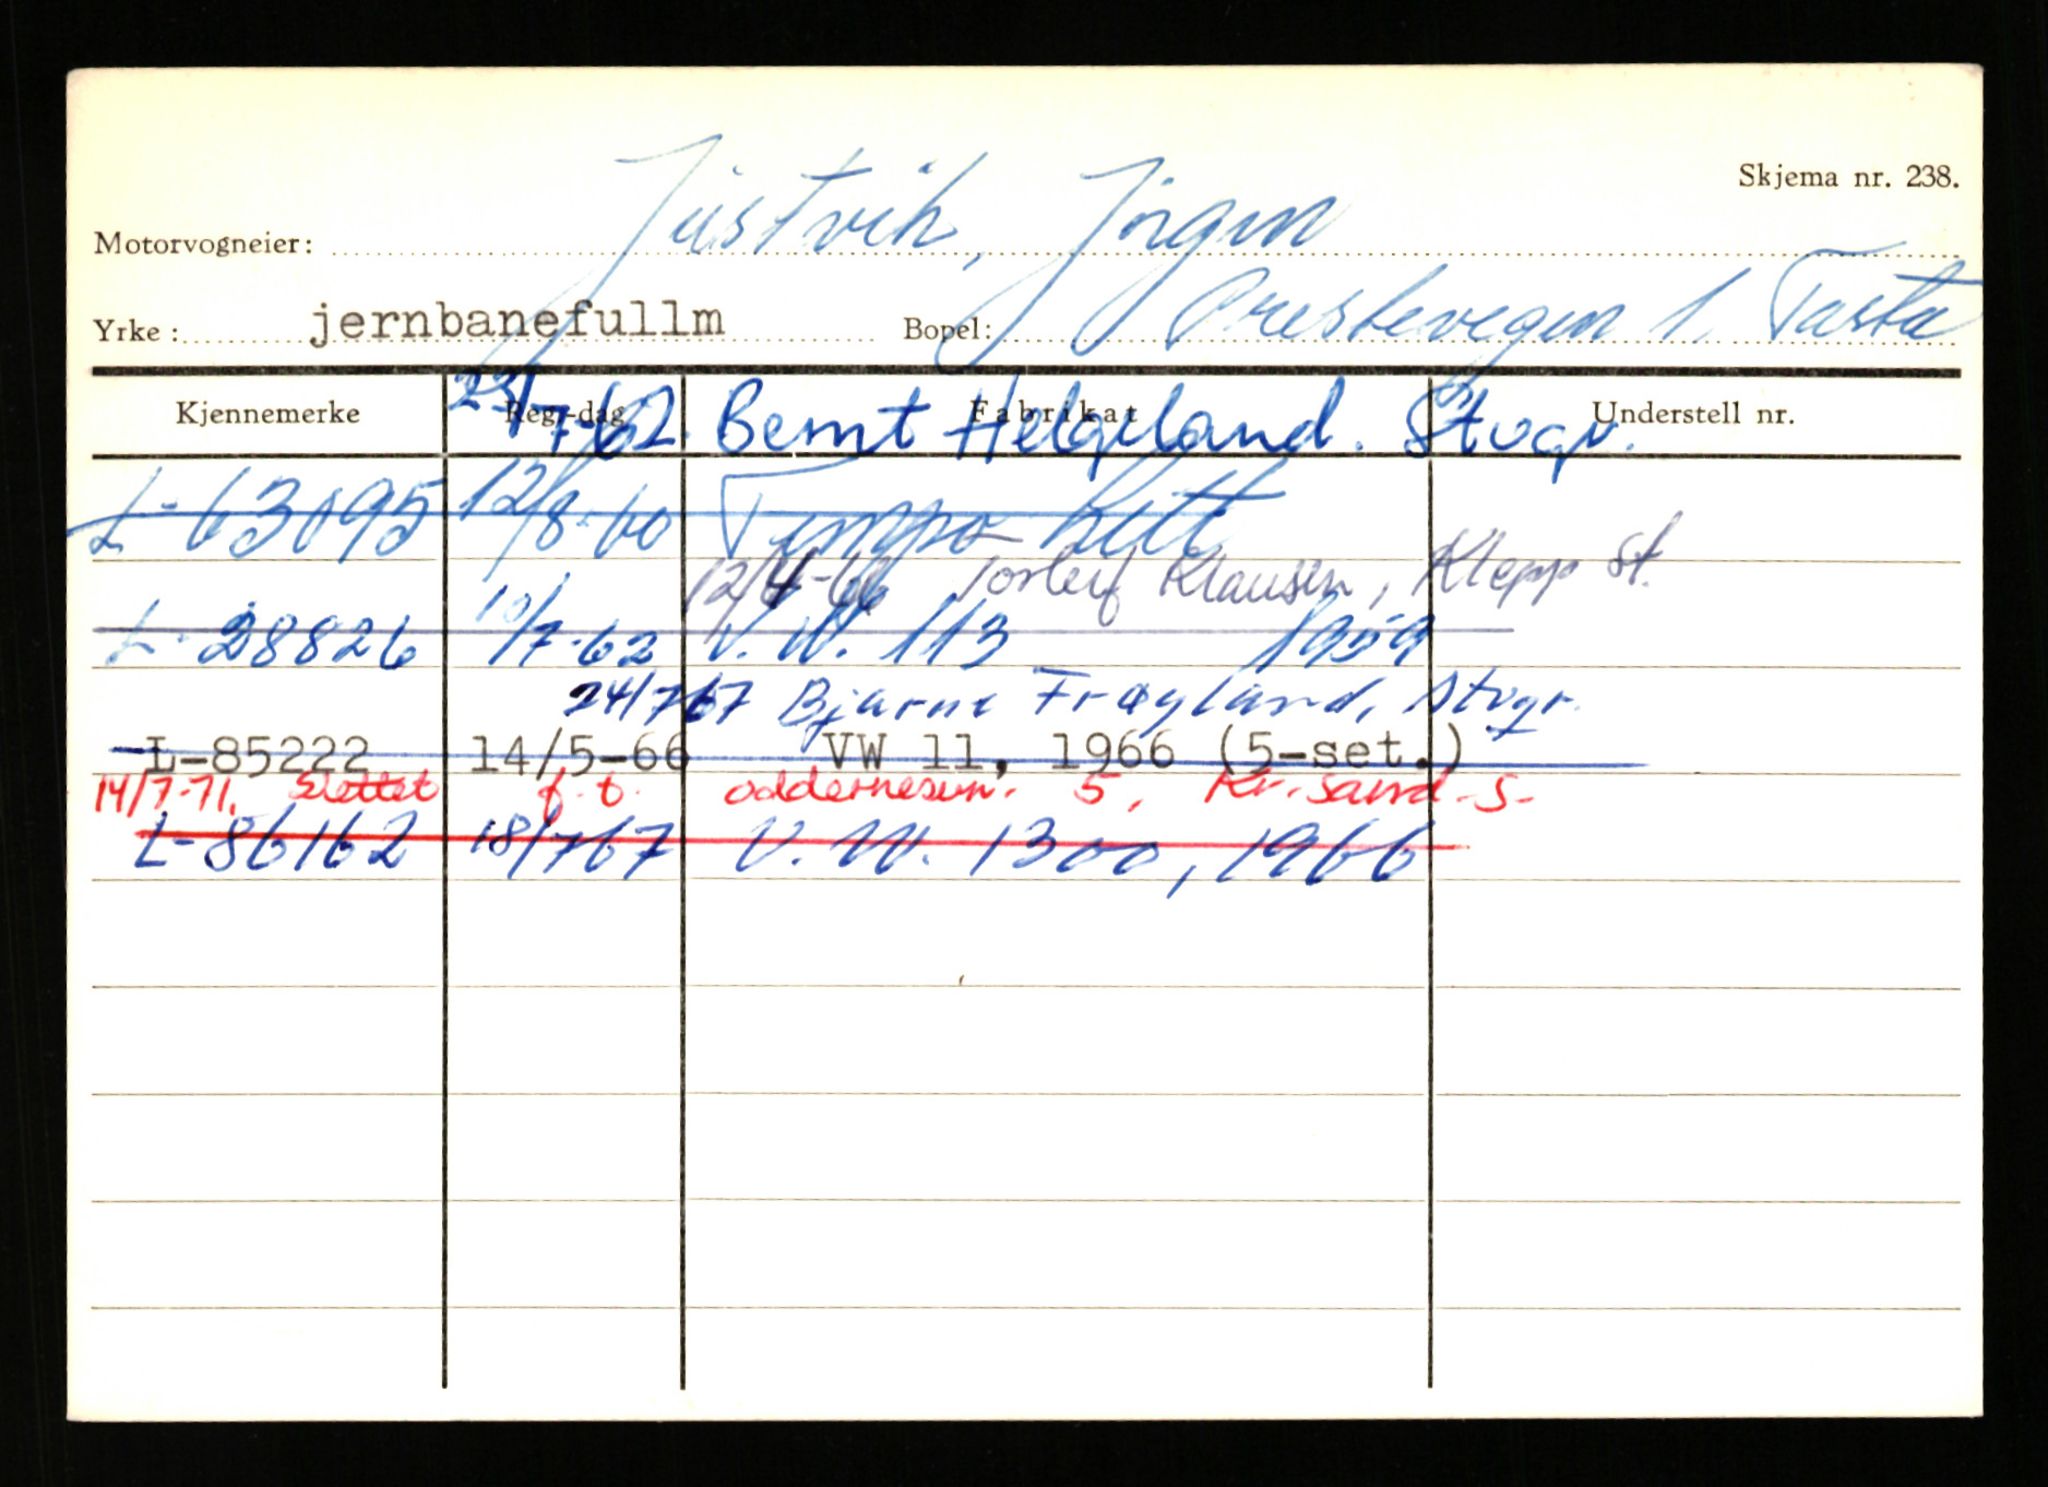 Skjema nr. 238.
Motorvogneier: Justvik, Jörgen
Yrke: jernbanefullm Bopel: Prestevegen 1. Tasta
Kjennemerke Reg.-dag Fabrikat Understell nr.
23/7-62 Bernt Helgeland. Stvgr.
L-63095 12/8-60 Tempo Lett
12/4-66 Torleif Klausen, Klepp st.
L-28826 10/7-62 V.W. 113 1959
24/7 67 Bjarne Frøyland, Stvgr.
L-85222 14/5-66 VW 11, 1966 (5-set.)
14/7-71. Slettet f.t. oddernesvn. 5, Kr.sand-S-
L-86162 18/7 67 V.W. 1300, 1966